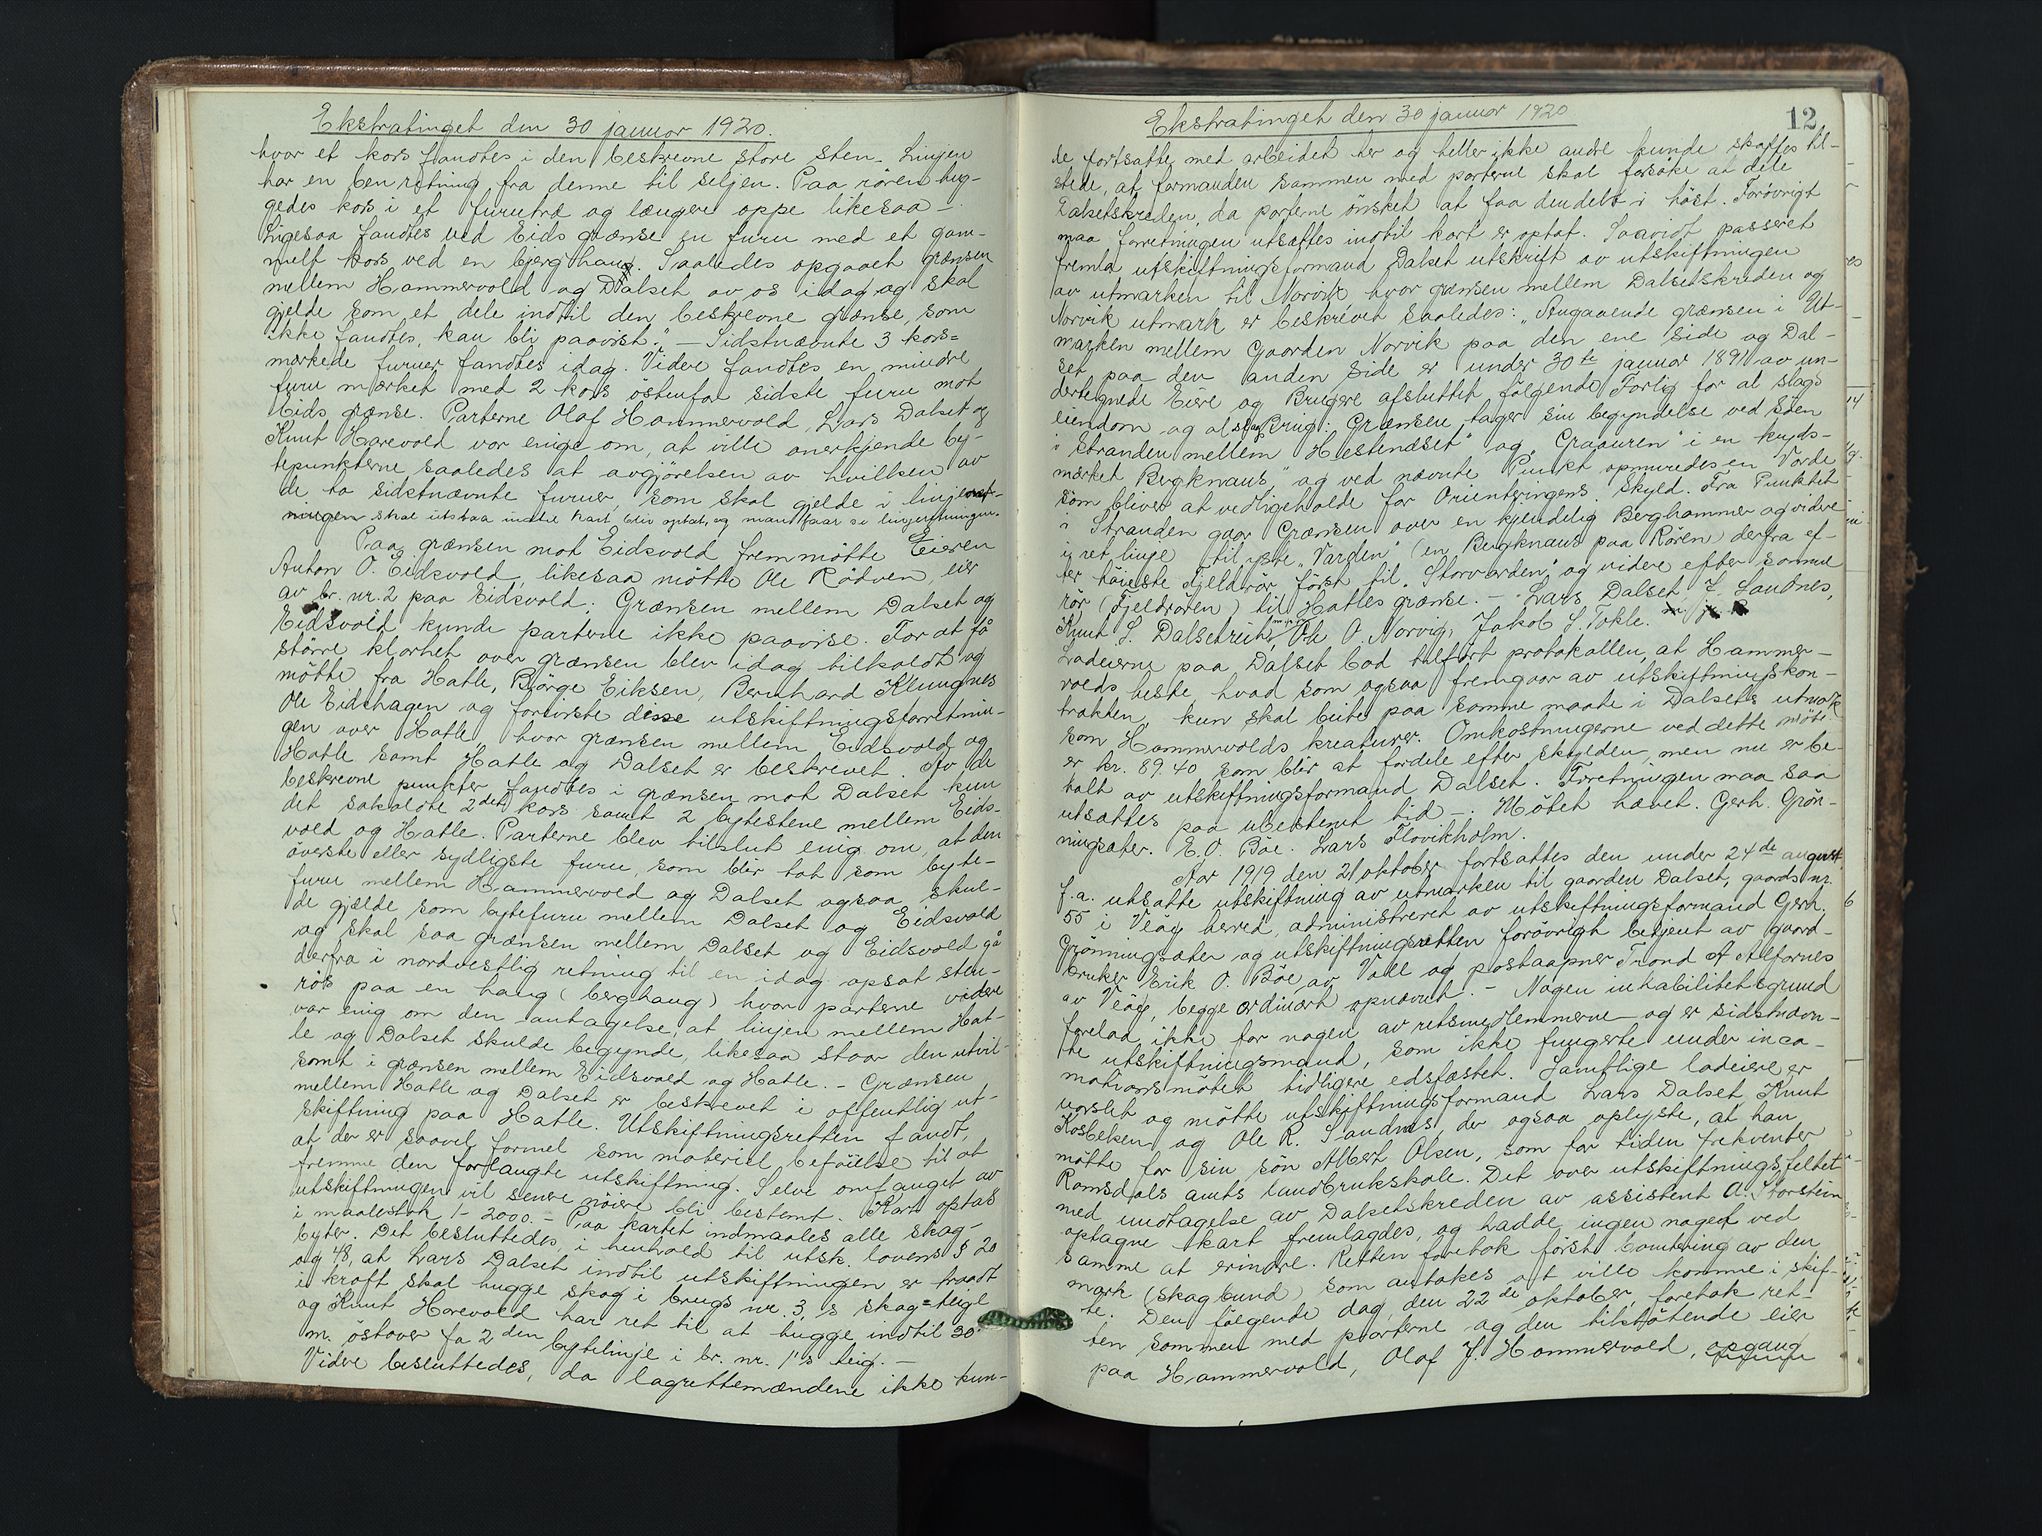 Ekstratinget den 30 januar 1920.
hvor et kors fandtes i den beskrevne store sten. Linjen
har en ben retning fra denne til seljen. Paa røren hug-
gedes kors i et furutræ og længere oppe likesaa.
Ligesaa fandtes ved Eids grænse en furu med et gam-
melt kors ved en berghaug. Saaledes opgaaet grænsen
mellem Hammervold og Dalset av os idag og skal
gjelde som et dele indtil den beskrevne grænse, som
ikke fandtes, kan bli paavist." – Sidstnævnte 3 kors-
merkede furuer fandtes idag. Videre fandtes en mindre
furu mærket med 2 kors østenfor sidste furu mot
Eids grænse. Parterne Olaf Hammervold, Lars Dalset og
Knut Harevold var enige om, at ville anerkjende by-
tepunkterne saaledes at avgjørelsen av hvilken av
de to sidstnævnte furuer, som skal gjelde i linjeret-
ningen skal utstaa indtil kart blir optat, og man faar se linjeretningen.
Paa grænsen mot Eidsvold fremmøtte Eieren
Anton O. Eidsvold, likesaa møtte Ole Rødven, eier
av br. nr. 2 paa Eidsvold. Grænsen mellem Dalset og
Eidsvold kunde parterne ikke paavise. For at få
større klarhet over grænsen blev idag tilkaldt og
møtte fra Hatle, Børge Eiksen, Bernhard Klungnes
Ole Eidshagen og foreviste disse utskiftningsforretnin-
gen over Hatle hvor grænsen mellem Eidsvold og
Hatle samt Hatle og Dalset er beskrevet. Av de
beskrevne punkter fandtes i grænsen mot Dalset kun
det sakaldte 2det kors samt 2 bytestene mellem Eids-
vold og Hatle. Parterne blev tilslut enig om, at den
øverste eller sydligste furu, som blir tat som byte-
furu mellem Hammervold og Dalset ogsaa skul-
de gjælde som bytefuru mellem Dalset og Eidsvold
og skal saa grænsen mellem Dalset og Eidsvold gå
derfra i nordvestlig retning til en idag opsat sten-
røs paa en haug (berghaug) hvor parterne videre
var enig om den antagelse, at linjen mellem Hat-
le og Dalset skulde begynde, likesaa staar den utvil-
somt i grænsen mellem Eidsvold og Hatle. – Grænsen
mellem Hatle og Dalset er beskrevet i offentlig ut-
skiftning paa Hatle. Utskiftningsretten fandt,
at der er saavel formel som materiel beføielse til at
fremme den forlangte utskiftning. Selve omfanget av
utskiftningen vil senere nøiere bli bestemt. Kart optas
i maalestok 1-2000. – Paa kartet indmaales alle skog-
byter. Det besluttedes i henhold til utsk. lovens § 20
og 48, at Lars Dalset indtil utskiftningen er traadt
i kraft skal hugge skog i brugs nr. 3, s skog-teige
og Knut Harevold har ret til at hugge indtil 30
m. østover fa 2 den bytelinje i br. nr. 1's teig. –
Videre besluttedes, da lagrettemændene ikke kun-
Ekstratinget den 30 januar 1920
12
de fortsatte med arbeidet her og heller ikke andre kunde skaffes til-
stede, at formanden sammen med parterne skal forsøke at dele
Dalsetskreden, da parterne ønsket at faa den delt i høst. Forøvrigt
maa forretningen utsættes indtil kart er optat. Saavidt passeret
fremla utskiftningsformand Dalset utskrift av utskiftningen
av utmarken til Norvik hvor grænsen mellem Dalsetskreden og
Norvik utmark er beskrevet saaledes: „Angaaende grænsen i Ut-
marken mellem Gaarden Norvik paa den ene Side og Dal-
set paa den anden Side er under 30te januar 1891 av un-
dertegnede Eiere og Brugere afsluttet følgende Forlig for al slags
eiendom og al slags Brug: Grænsen tager sin begyndelse ved Søen
i Stranden mellem „Hestenæset" og „Graauren" i en kryds-
mærket Bergknaus, og ved nævnte Punkt opmuredes en Varde
som bliver at vedligeholde for Orienteringens Skyld. Fra Punktet
i Stranden gaar Grænsen over en kjendelig Berghammer og videre
i ret linje til yste „Varden" (en Bergknaus paa Røren) derfra ef-
ter høieste Fjeldrør først til „Storvarden" og videre efter samme
rør (Fjeldrøren) til Hatles grænse. – Lars Dalset J. Sandnes,
Knut S. Dalsetreit, Ole O. Norvig, Jakob S. Tokle.
Ladeierne paa Dalset bad tilført protokollen, at Hammer-
volds heste hvad som ogsaa fremgaar av utskiftningskon-
trakten, kun skal beite paa samme maate i Dalsets utmark
som Hammervolds kreaturer. Omkostningerne ved dette møte
er kr. 89.40 som blir at fordele efter skylden men nu er be-
talt av utskiftningsformand Dalset. Forretningen maa saa
utsættes paa ubestemt tid – Møtet hævet. Gerh. Grøn-
ningsæter. E. O. Bøe. Lars Flovikholm.
Aar 1919 den 21 oktober fortsattes den under 24de august
f.a. utsatte utskiftning av utmarken til gaarden Dalset, gaards nr.
55 i Veøy herred, administreret av utskiftningsformand Gerh.
Grønningsæter og utskiftningsretten forøvrigt betjent av gaard-
bruker Erik O. Bøe av Vold og postaapner Trond A Alfarnes
av Veøy, begge ordinært opnævnt. – Nogen inhabilitetsgrund
forelaa ikke for nogen av retsmedlemmerne og er sidstnævn-
te utskiftningsmand, som ikke fungerte under inca-
mationsmøtet tidligere edsfæstet. Samtlige ladeiere er
varslet og møtte utskiftningsformand Lars Dalset, Knut
Kosbekken og Ole R. Sandnes, der ogsaa oplyste, at han
møtte for sin søn Albert Olsen, som for tiden frekventer
Romsdals amts landbrukskole. Det over utskiftningsfeltet
med undtagelse av Dalsetskreden av assistent O. Storstein
optagne kart fremlagdes, og hadde ingen noget ved
samme at erindre. Retten foretok først bonitering av den
mark (skogbund) som antakes at ville komme i skif-
te. Den følgende dag, den 22 de oktober, foretok ret-
ten sammen med parterne og den tilstøtende eier
paa Hammervold, Olaf J. Hammervold, opgang